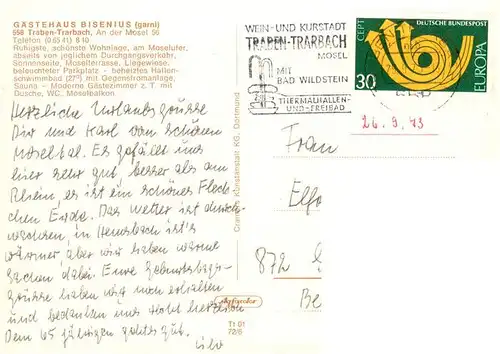 GÄSTEHAUS BISENIUS (garni)
558 Traben-Trarbach, An der Mosel 56
Telefon (0 65 41) 8 10
Ruhigste, schönste Wohnlage, am Moselufer,
abseits von jeglichem Durchgangsverkehr,
Sonnenseite, Moselterrasse, Liegewiese,
beleuchteter Parkplatz - beheiztes Hallen-
schwimmbad (27°) mit Gegenstromanlage,
Sauna - Moderne Gästezimmer z. T. mit
Dusche, WC, Moselbalkon.
Herzliche Urlaubsgrüsse
Dir und Karl vom schönen
Moseltal. Es gefällt uns
hier sehr gut, besser als am
Rhein, es ist ein schönes Fleck-
chen Erde. Das Wetter ist durch-
wachsen, in Hemsbach ist's
wärmer, aber wir haben warme
Sachen dabei. Eure Geburtstags-
grüsse haben wir noch erhalten
und bedanken uns herzlich
Dem 65 jährigen geht's gut.
WEIN- UND KURSTADT
TRABEN-TRARBACH
MOSEL
MIT
BAD WILDSTEIN
THERMALHALLEN-
UND-FREIBAD
CEPT
DEUTSCHE BUNDESPOST
EUROPA
30
26.9.73
Frau
872
Tt 01
72/6